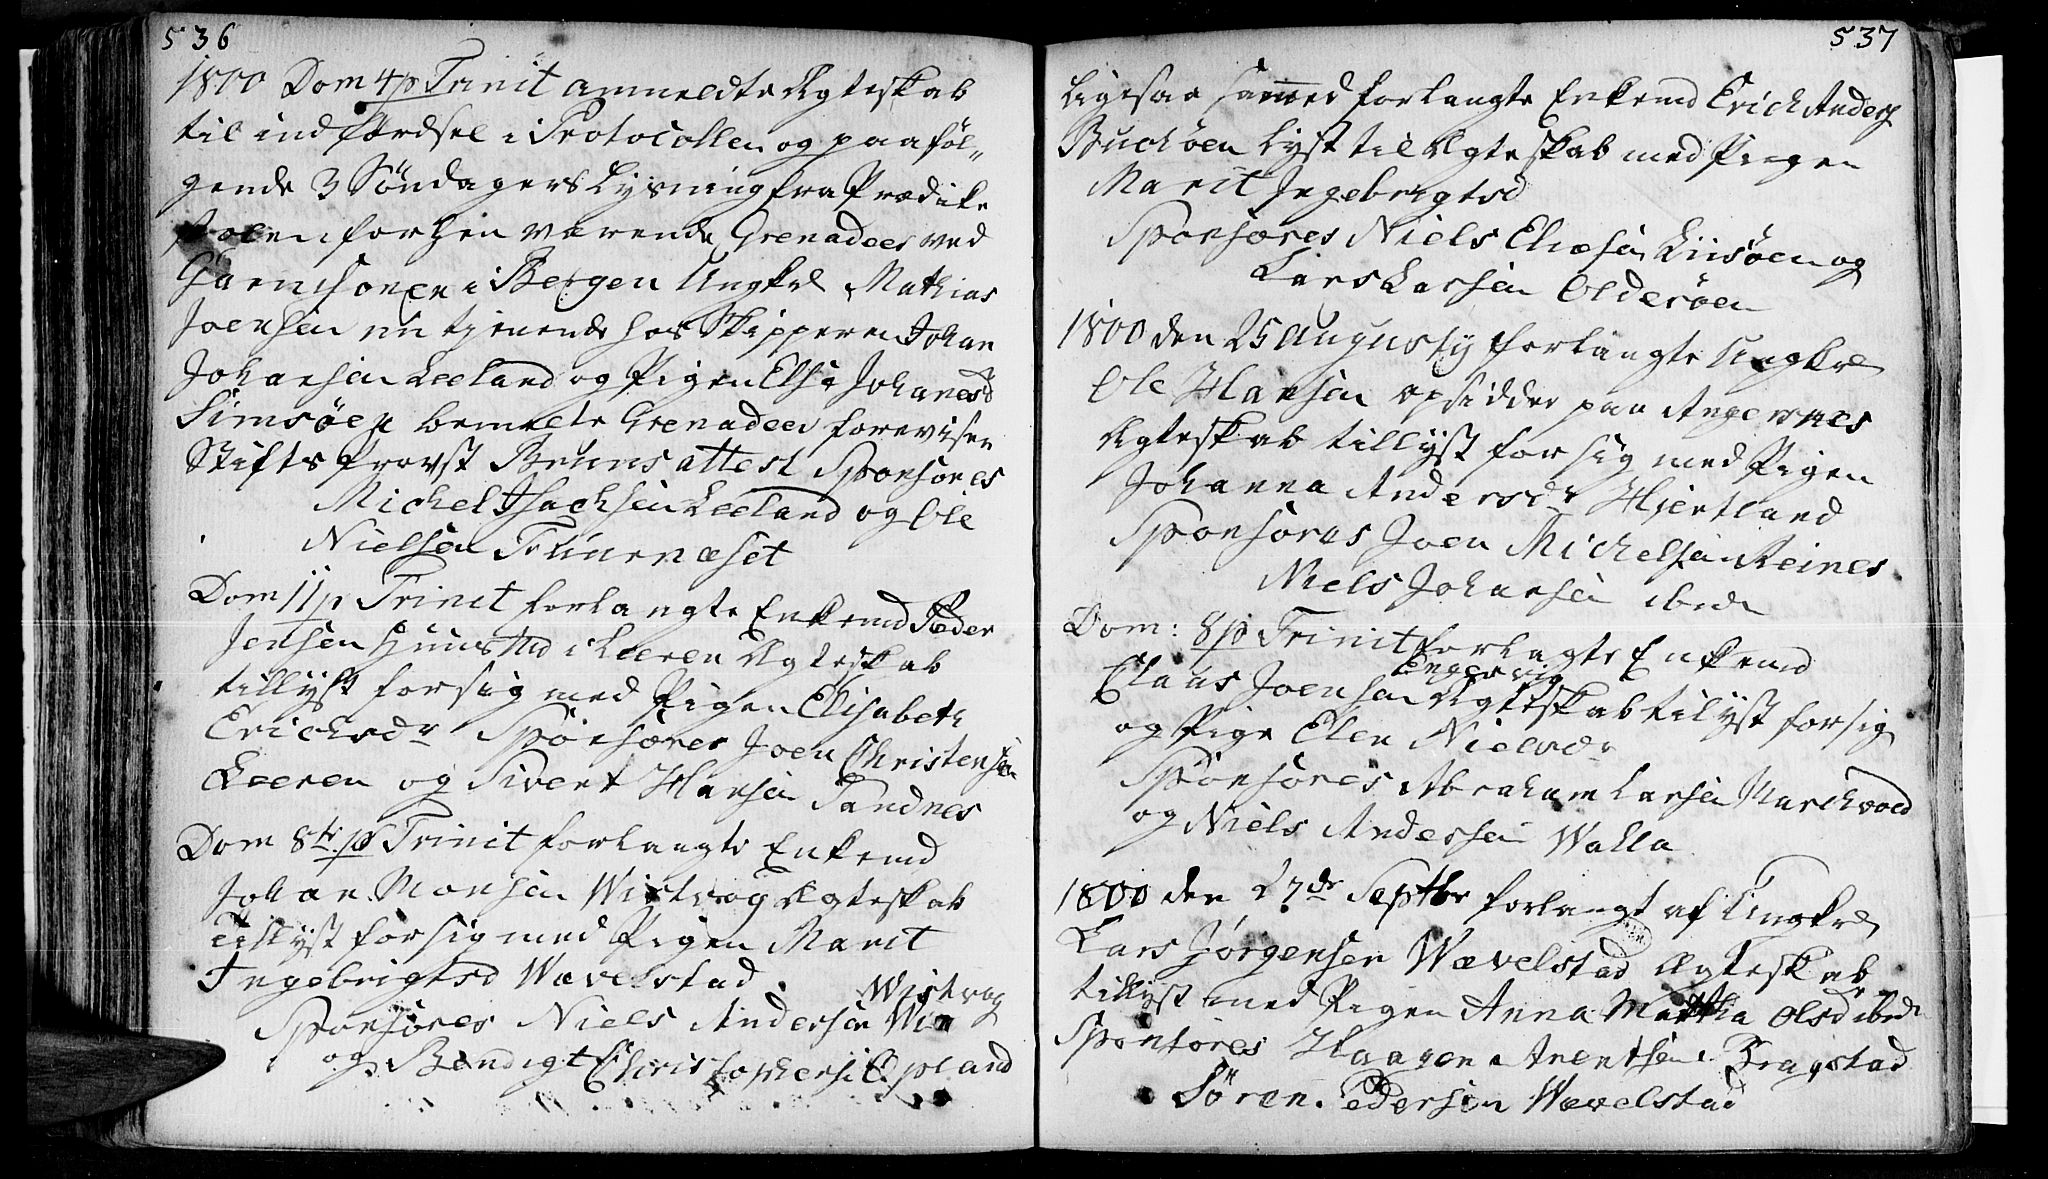 536
1800 Dom 4 p Trinit anmeldte Ægteskab
til indførdsel i Protocollen og paaføl„
gende 3 Søndagers Lysning fra Prædike
stolen forhen værende Grenadeer ved
Garnisonen i Bergen Ungkrl Mathias
Joensen nu tjenende hos Skipperen Johan
Johansen Leeland og Pigen Else Johanesd
Simsöen bemelte Grenadeer foreviser
Stifts Provst Bruns attest Sponsores
Michel Isachsen Leeland og Ole
Nielsen
Dom 11 p Trinit forlangte Enkemd Peder
Jensen Huusmd i Leeren Ægteskab
tillyst for sig med Pigen Elisabeth
Erichsdr Sponsores Joen Christensen
Leeren og Sivert Hansen Sandnes
Dom 8de p Trinit forlangte Enkemd
Johan Monsen Wistvog Ægteskab
tillyst for sig med Pigen Marit
Ingebrigtsd Wævelstad
Sponsores Niels Andersen Wistvog
og Bendigt Christophersen
537
Ligesaa sammed forlangte Enkemd Erich Anders
Buchöen Lyst til Ægteskab med Pigen
Marit Ingebrigtsd
Sponsores Niels Eliæsen og
Lars Larsen Olderöen
1800 den 25 Augusty forlangte Ungkrl
Ole Hansen opsidder paa Angersnes
Ægteskab tillyst for sig med Pigen
Johanna Andersdr Hjertland
Sponsores Joen Michelsen Reines
Niels Johansen ibid
Dom: 8 p Trinit forlagte Enkemd
Claus Joensen Engesvig Ægteskab tilyst for sig
og Pige Elen Nielsdr
Sponsores Abraham Larsen Marchvold
og Niels Andersen Walla
1800 den 27de Septbr forlangt af Ungkrl
Lars Jørgensen Wævelstad Ægteskab
tillyst med Pigen Anna Martha Olsd ibid
Sponsores Haagen Arentsen Bragstad
Sören Pedersen Wævelstad